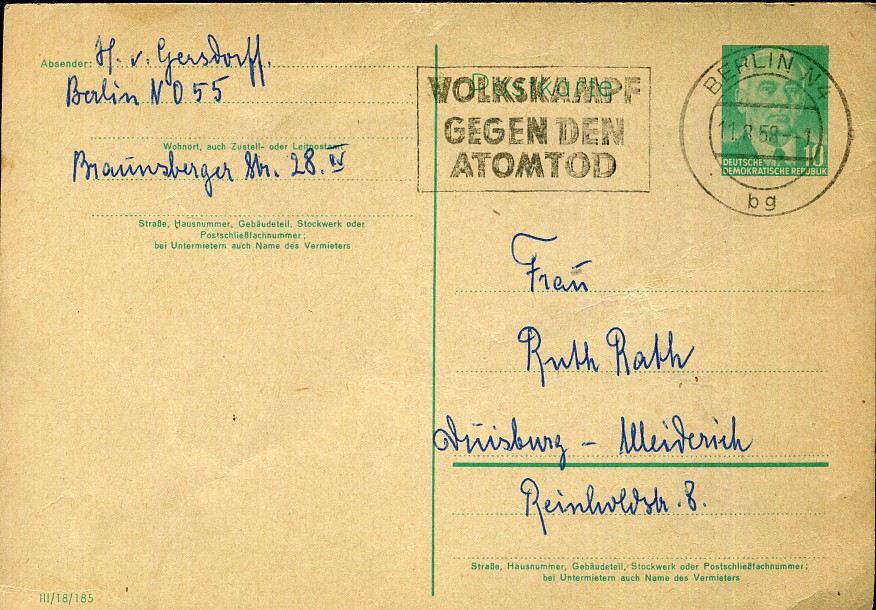 Absender: H. v. Gersdorff.
Berlin NO 55
Wohnort, auch Zustell- oder Leitpostamt
Braunsberger Str. 28. IV
Straße, Hausnummer, Gebäudeteil, Stockwerk oder
Postschließfachnummer;
bei Untermietern auch Name des Vermieters
III/18/185
Postkarte
VOLKSKAMPF
GEGEN DEN
ATOMTOD
BERLIN N4
11.8.58
bg
10
DEUTSCHE
DEMOKRATISCHE REPUBLIK
Frau
Ruth Rath
Duisburg - Meiderich
Reinholdstr. 8.
Straße, Hausnummer, Gebäudeteil, Stockwerk oder Postschließfachnummer;
bei Untermietern auch Name des Vermieters